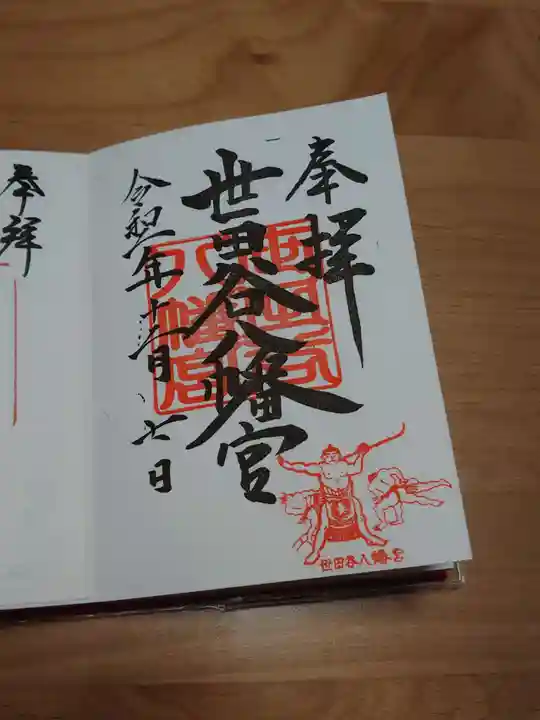 奉拝
世田谷八幡宮
世田谷
八幡宮
令和二年十二月七日
世田谷八幡宮
奉拝